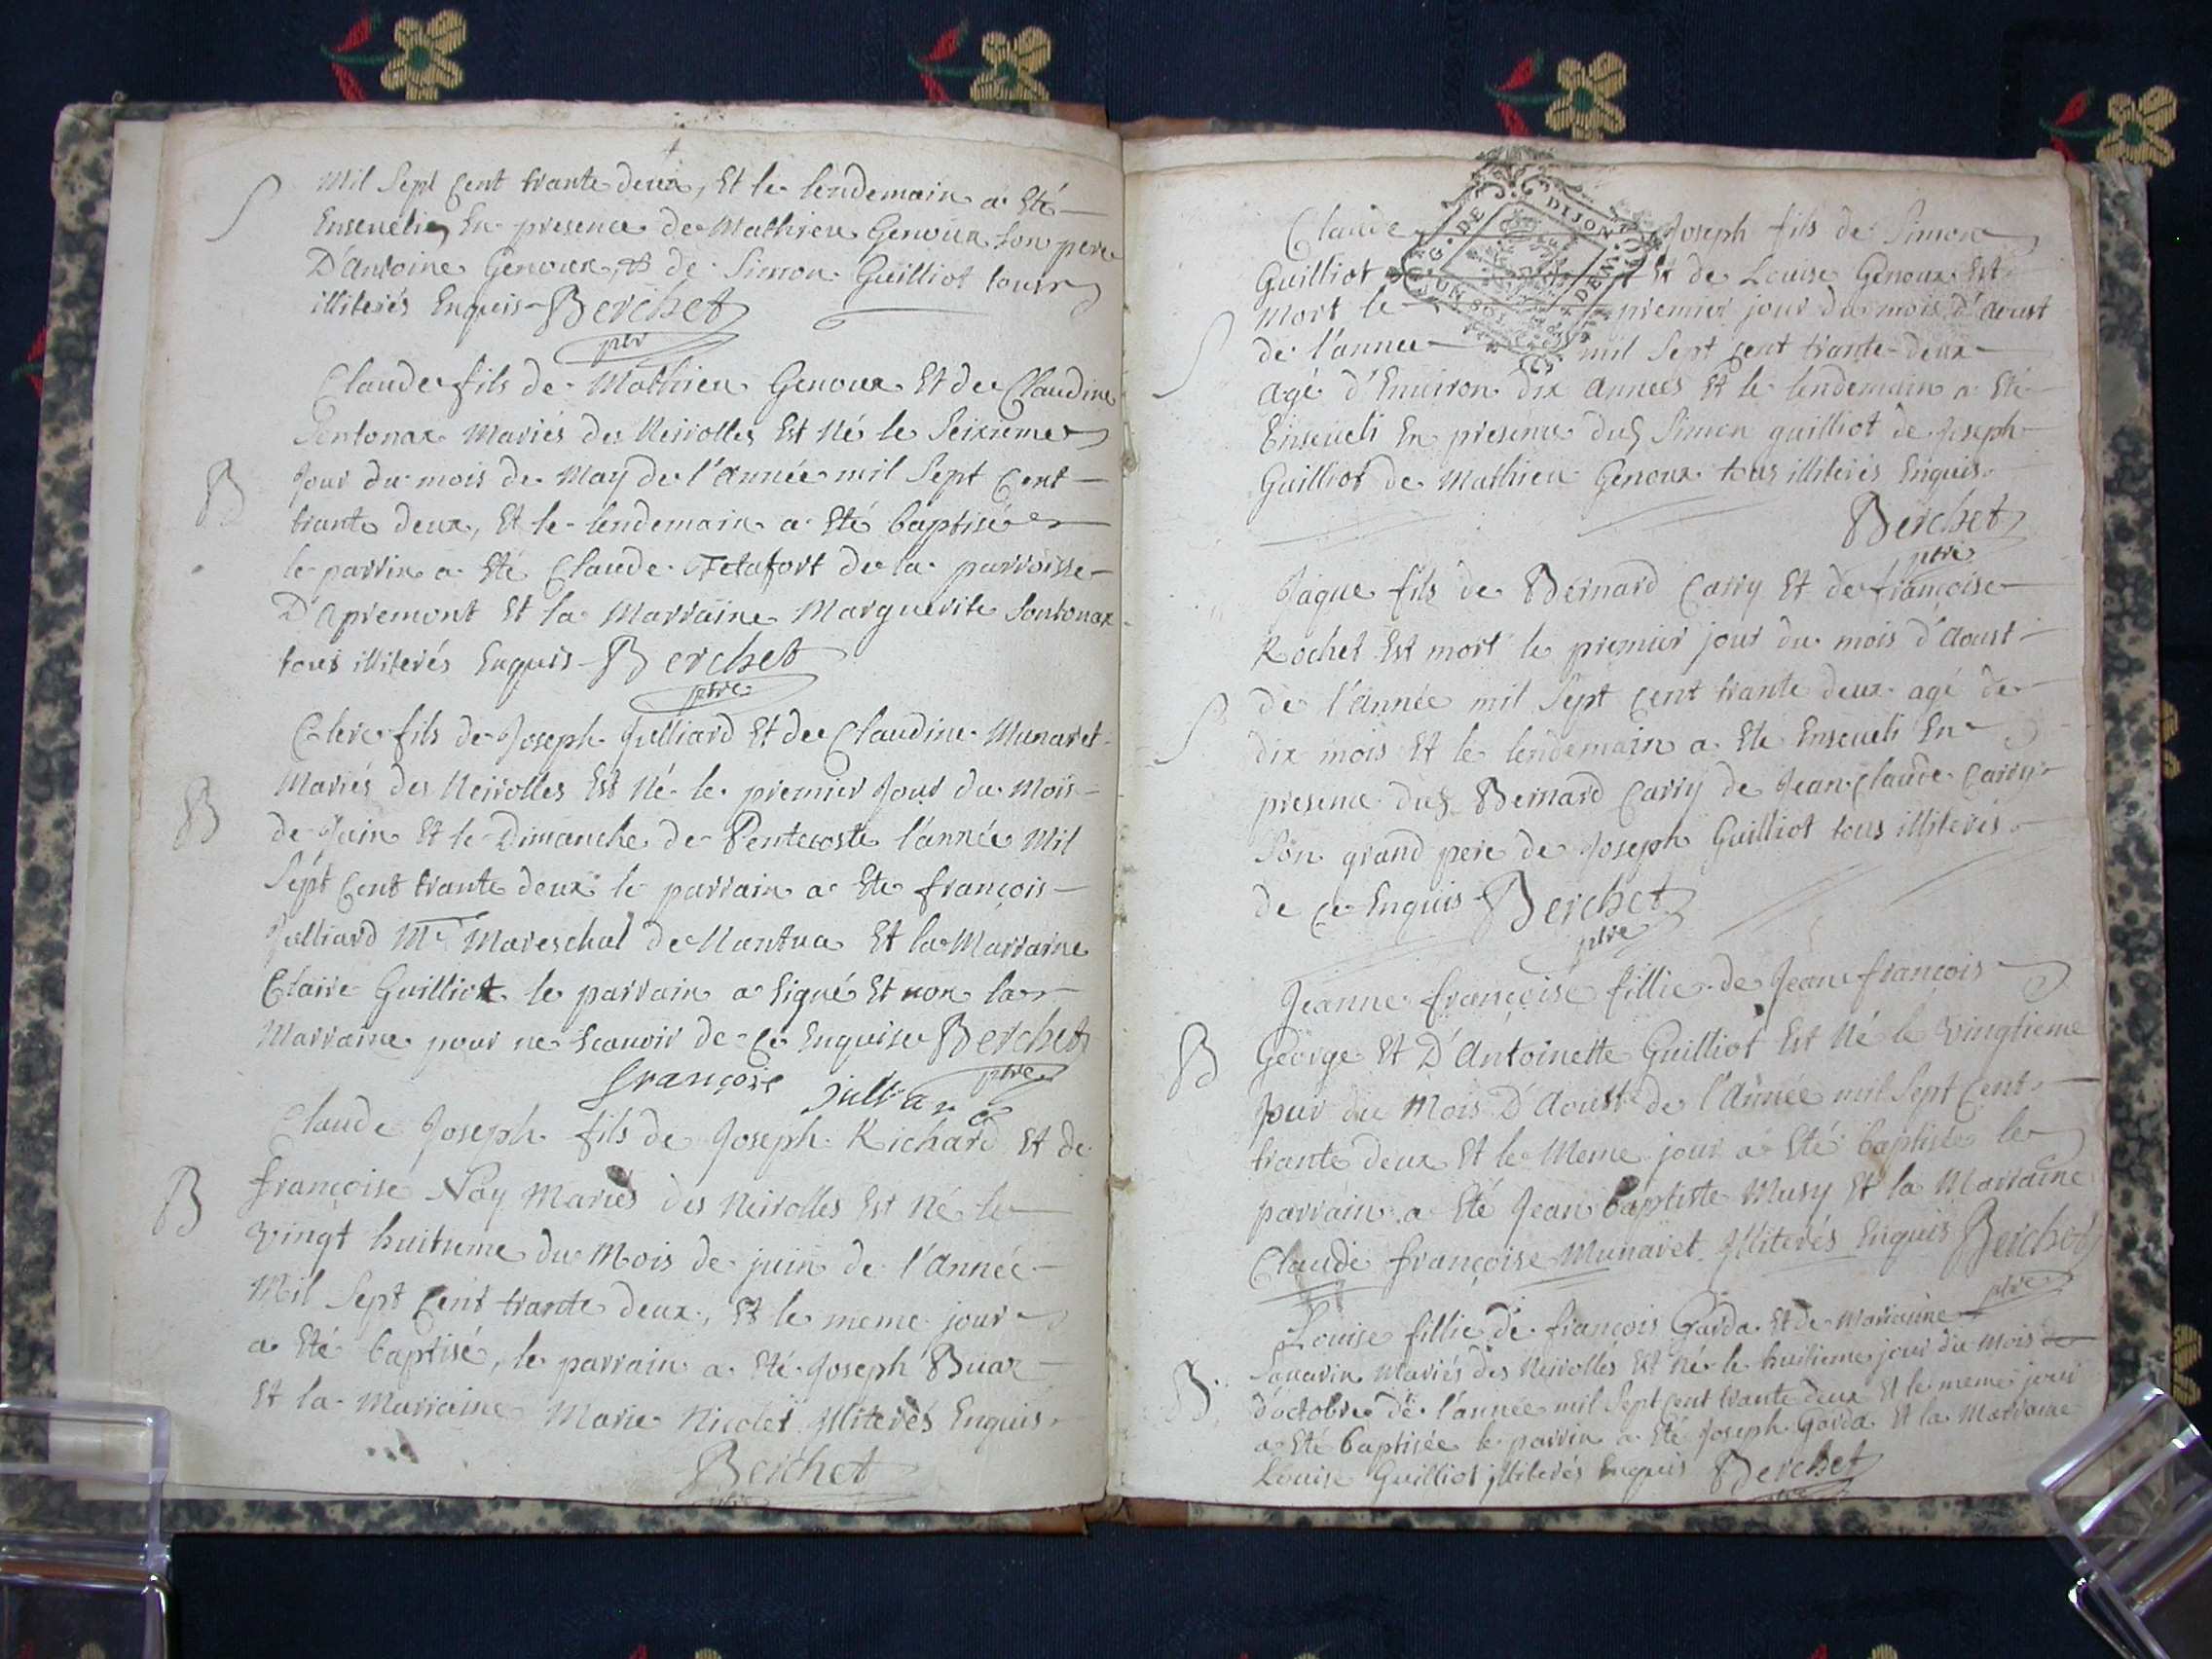 S
mil Sept Cent trante deux, Et le lendemain a Eté
Enseueli En presence de Mathieu Genoux Son pere
D'Antoine Genoux, & de Simon Guilliot tous
illiterés Enquis Berchet
ptre
Claude fils de Mathieu Genoux Et de Claudine
Sontonax Mariés des Neirolles Est Né le Seizieme
B
Jour du mois de May de l'Année mil Sept Cent
trante deux, Et le lendemain a Eté baptisé
le parrin a Eté Claude de la parroisse
D'Apremont Et la Marraine Marguerite Sontonax
tous illiterés Enquis Berchet
ptre
Clere fils de Joseph Julliard Et de Claudine Munaret
B
Mariés des Neirolles Est Né le premier Jour du Mois
de Juin Et le Dimanche de Pentecoste l'année Mil
Sept Cent trante deux le parrain a Ete françois
Julliard Me Mareschal de Nantua Et la Marraine
Claire Guilliot le parrain a Signé Et non la
Marraine pour ne Scauoir de Ce Enquise Berchet
ptre
françois julliard
Claude Joseph fils de Joseph Richard Et de
B
françoise Nay Mariés des Neirolles Est Né le
vingt huitieme du Mois de juin de l'Année
Mil Sept Cent trante deux, Et le meme jour
a Eté baptisé, le parrain a Eté Joseph Buax
Et la Marraine Marie Nicolet illiterés Enquis
Berchet
Claude Joseph fils de Simon
GEN. DE DIJON
Guilliot Et de Louise Genoux Est
Mort le premier jour du mois D'Aoust
S
de l'année mil Sept Cent trante deux
agé d'Enuiron dix années Et le lendemain a Eté
Enseueli En presence dud Simon guilliot de Joseph
Guilliot de Mathieu Genoux tous illiterés Enquis
Berchet
ptre
Jaque fils de Bernard Carry Et de françoise
Rochet Est mort le premier jour du mois d'Aoust
S
de l'Année mil Sept Cent trante deux agé de
dix mois Et le lendemain a Eté Enseueli En
presence dud Bernard Carry de Jean Claude Carry
Son grand pere de Joseph Guilliot tous illiterés
de Ce Enquis Berchet
ptre
Jeanne françoise fillie de Jean françois
B
George Et D'Antoinette Guilliot Est Né le vingtieme
jour du Mois D'Aoust de l'Année mil Sept Cent
trante deux Et le Meme jour a Eté baptisée le
parrain a Eté Jean baptiste Musy Et la Marraine
Claude françoise Munaret illiterés Enquis Berchet
ptre
Louise fillie de françois Garda Et de Marianne
B
Sauarin Mariés des Neirolles Est Né le huitieme jour du Mois
d'octobre de l'année mil Sept Cent trante deux Et le meme jour
a Eté baptisée le parrin a Eté Joseph Garda Et la Marraine
Louise Guilliot illiterés Enquis Berchet